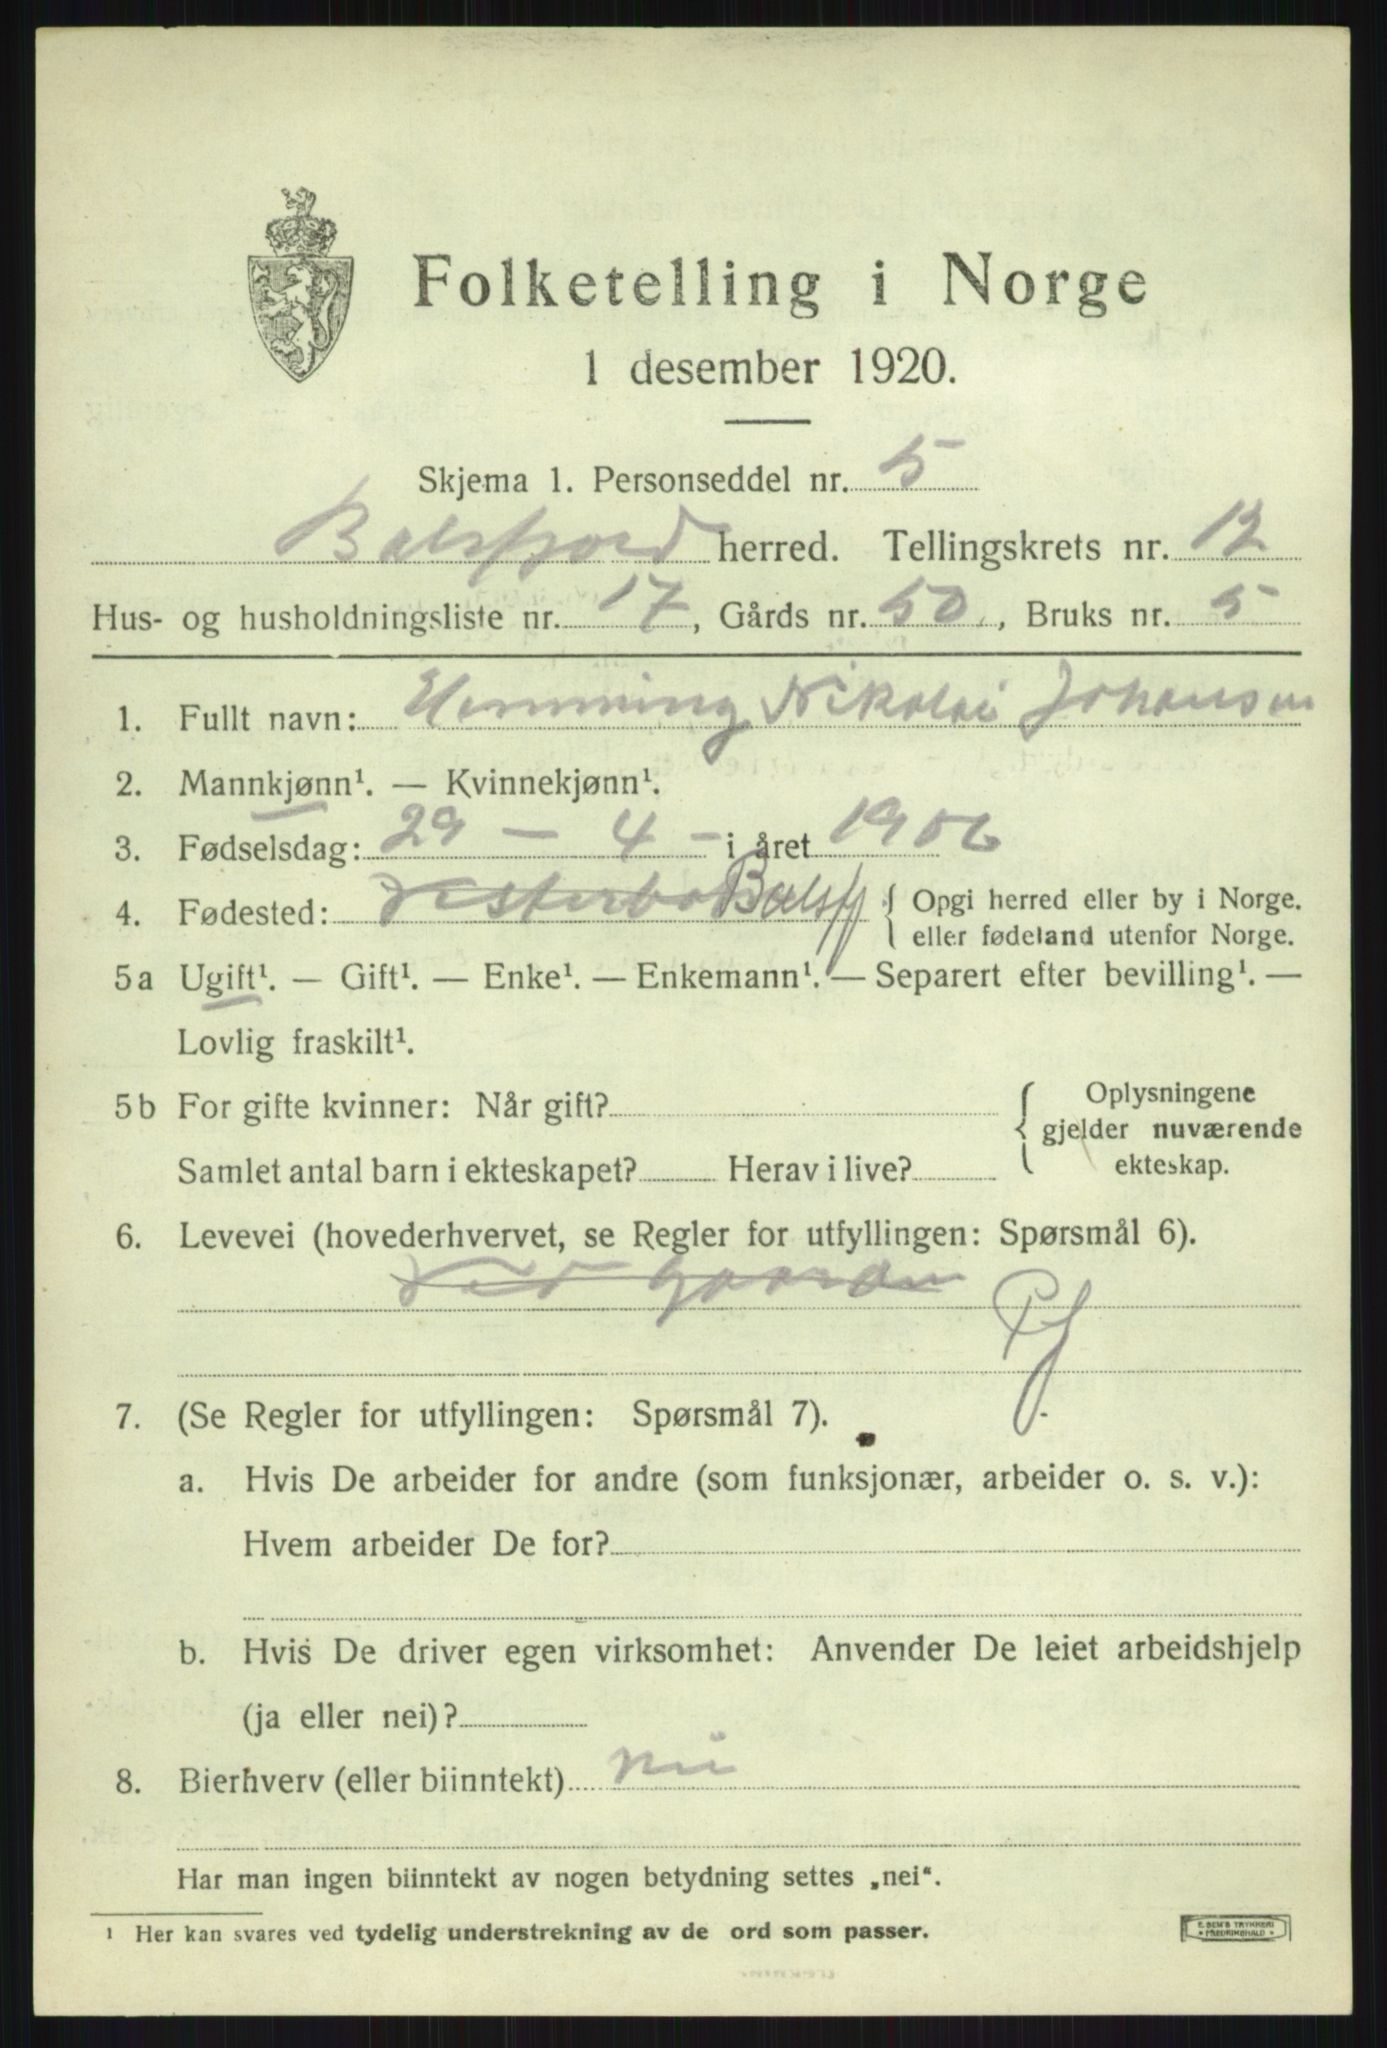 Folketelling i Norge
1 desember 1920.
Skjema 1. Personseddel nr. 5
Balsfjord herred. Tellingskrets nr. 12
Hus- og husholdningsliste nr. 17, Gårds nr. 50, Bruks nr. 5
1. Fullt navn: Hemming Nikolai Johansen
2. Mannkjønn¹. — Kvinnekjønn¹.
3. Fødselsdag: 29 — 4 – i året 1906
4. Fødested: Balsfj { Opgi herred eller by i Norge.
eller fødeland utenfor Norge.
5a Ugift¹. — Gift¹. — Enke¹. — Enkemann¹. — Separert efter bevilling¹. —
Lovlig fraskilt¹.
5b For gifte kvinner: Når gift? { Oplysningene
gjelder nuværende
ekteskap.
Samlet antal barn i ekteskapet? Herav i live?
6. Levevei (hovederhvervet, se Regler for utfyllingen: Spørsmål 6).
Ved Gaarden
7. (Se Regler for utfyllingen: Spørsmål 7).
a. Hvis De arbeider for andre (som funksjonær, arbeider o. s. v.):
Hvem arbeider De for?
b. Hvis De driver egen virksomhet: Anvender De leiet arbeidshjelp
(ja eller nei)?
8. Bierhverv (eller biinntekt) nei
Har man ingen biinntekt av nogen betydning settes „nei“.
¹ Her kan svares ved tydelig understrekning av de ord som passer.
E. SEM'S TRYKKERI
FREDRIKSHALD